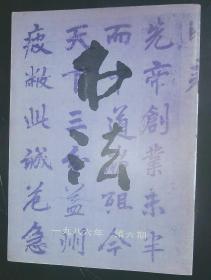 书法
先帝創業未半
而道崩殂今
天下三分益州
疲敝此誠危急
一九八六年 第六期